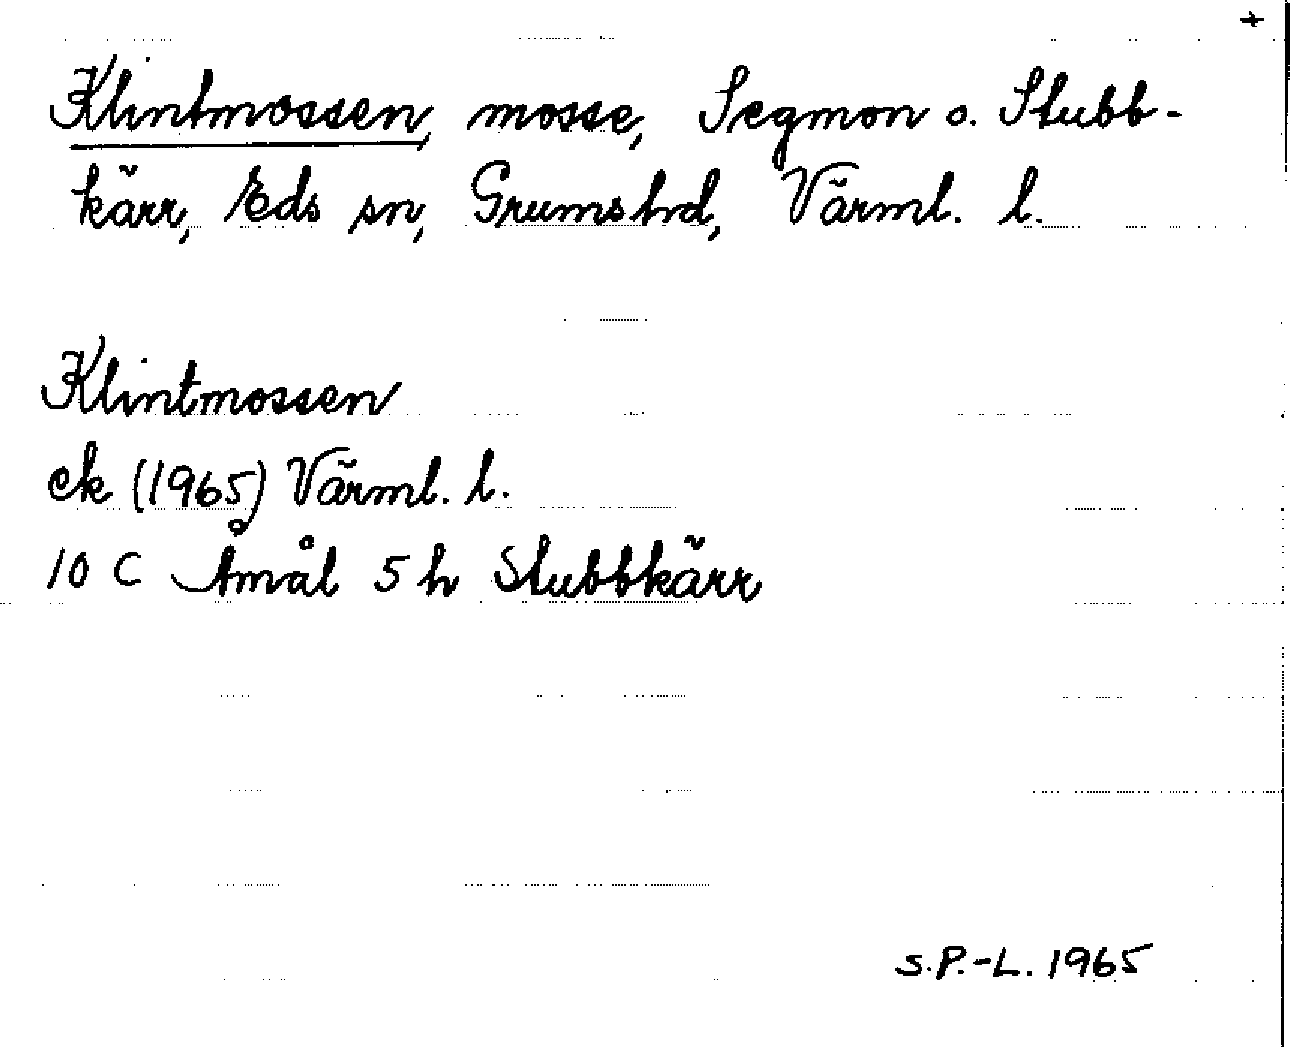 +
Klintmossen, mosse, Segmon o. Stubb-
kärr, Eds sn, Grums hd, Värml. l.
Klintmossen
ek (1965) Värml. l.
10 C Åmål 5 h Stubbkärr
S.P.-L. 1965